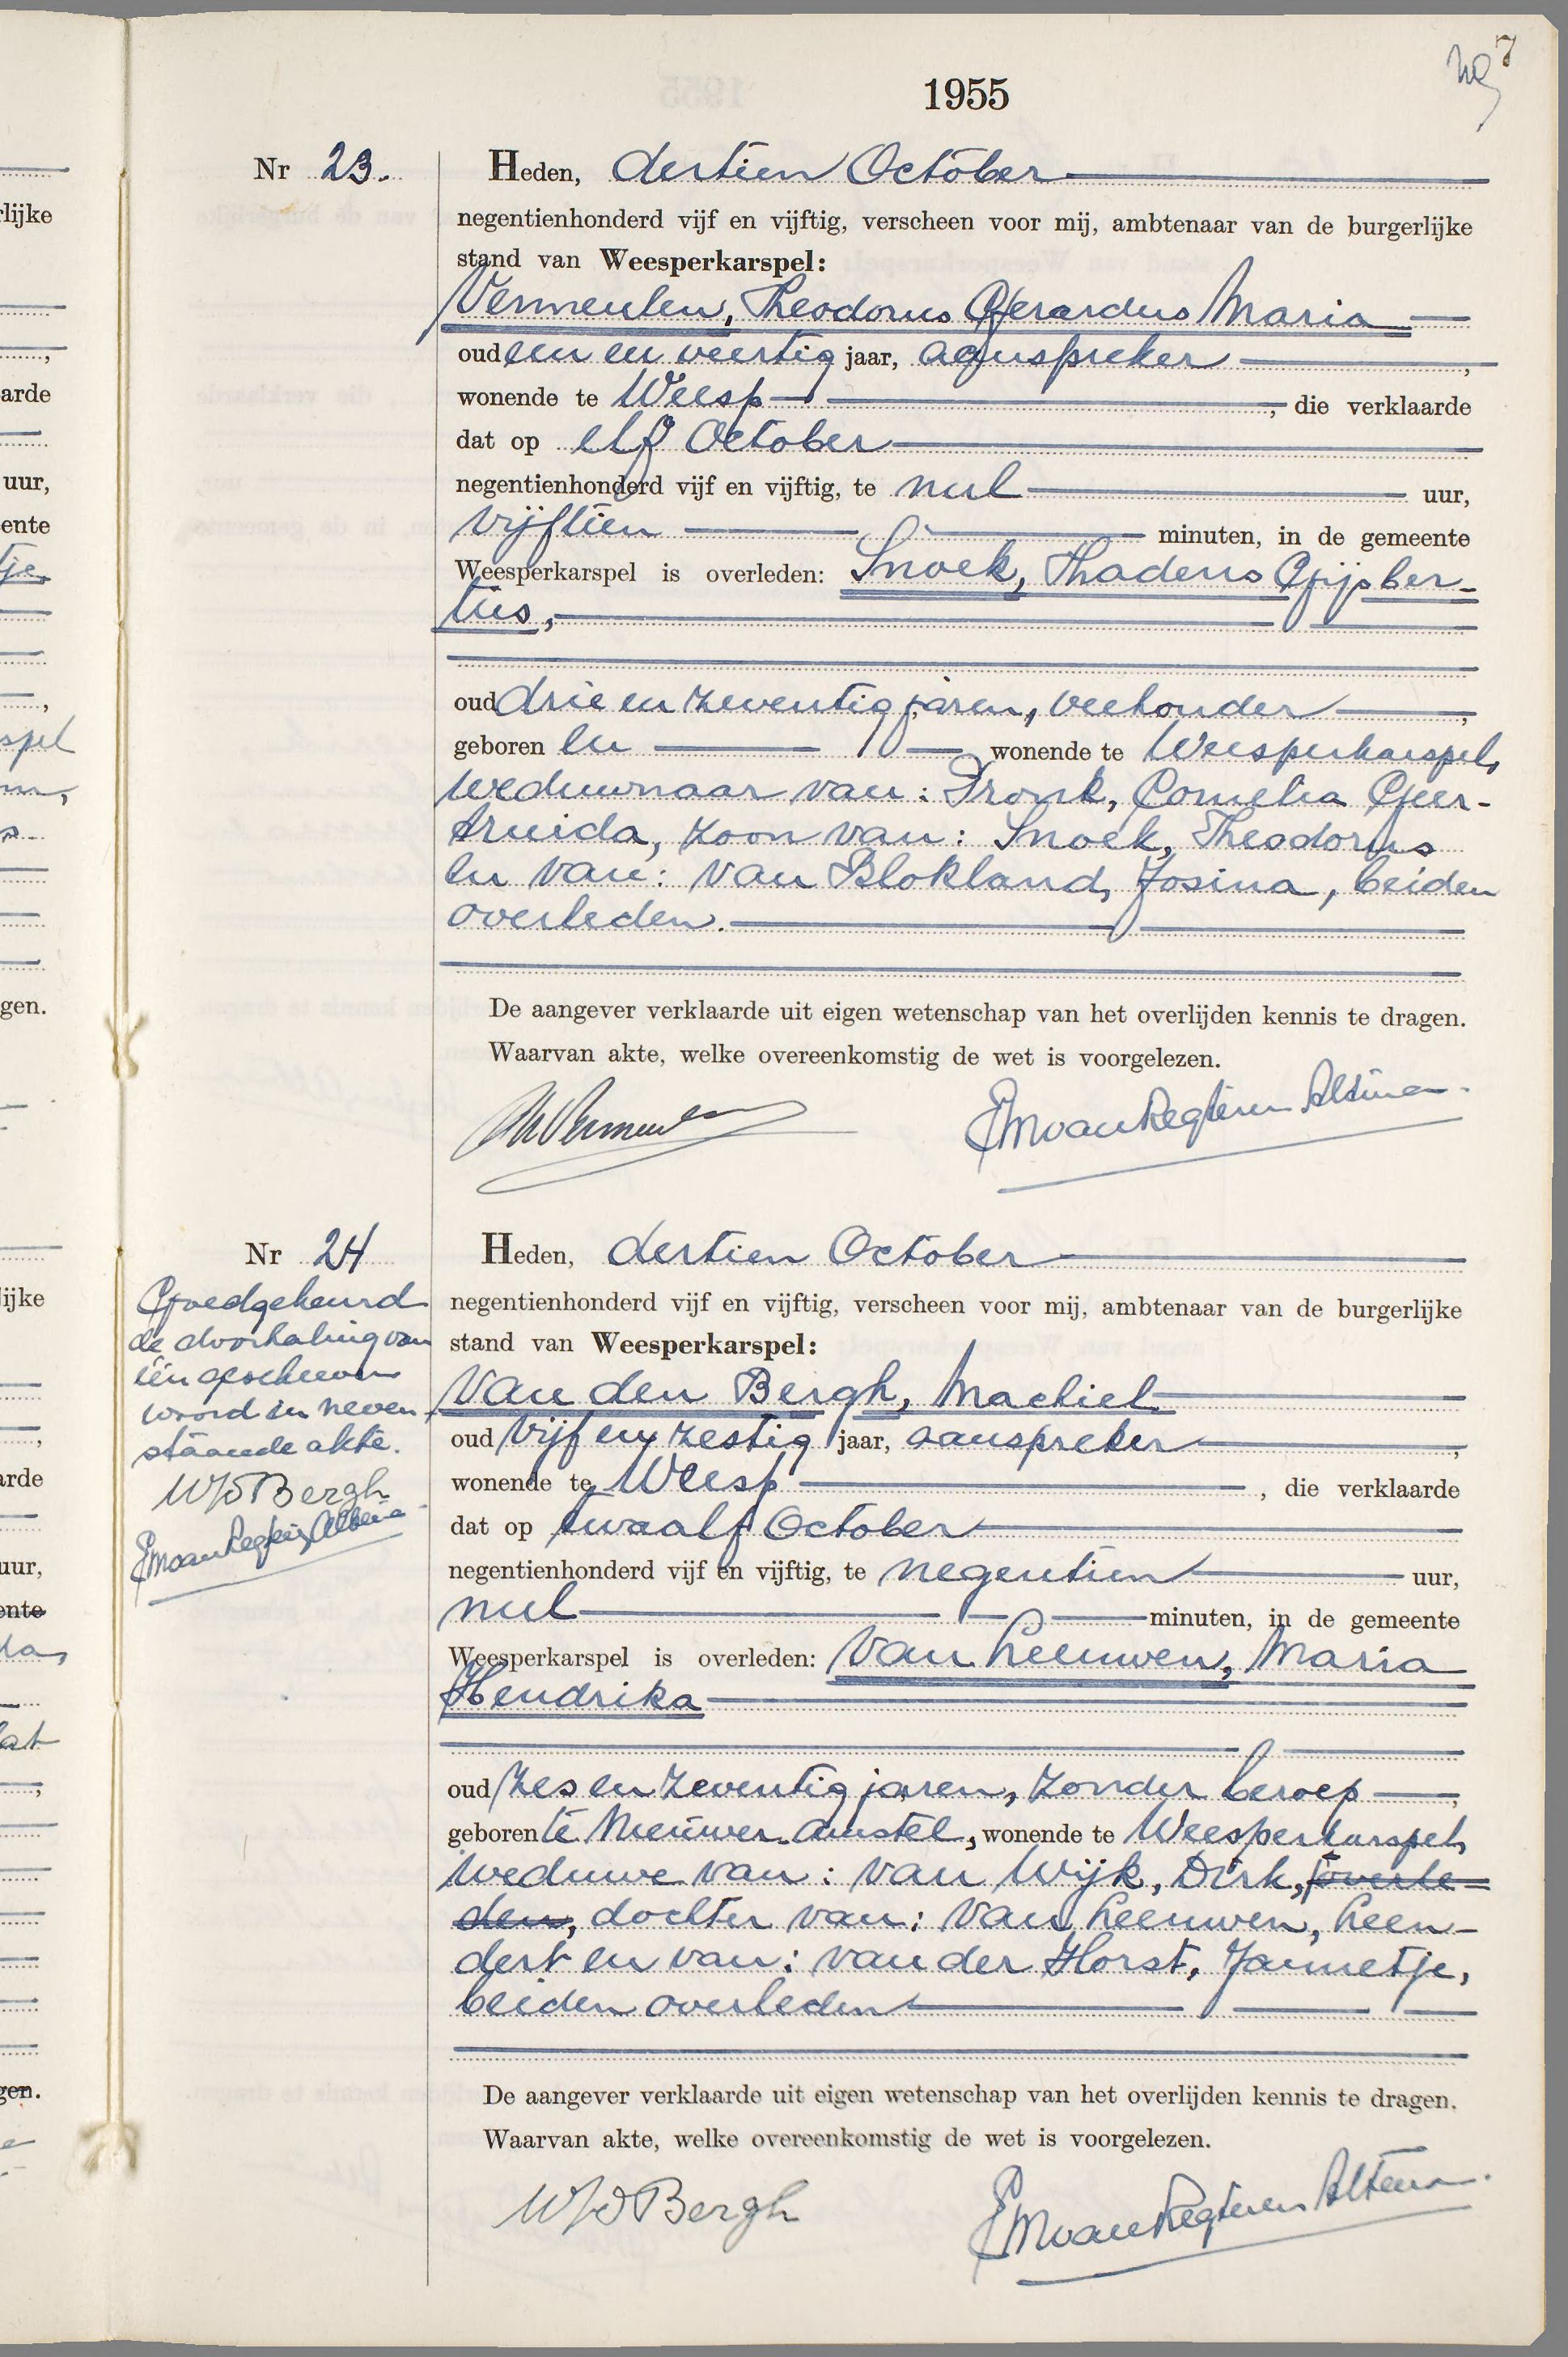 7
1955
Nr 23.
Heden, dertien October
negentienhonderd vijf en vijftig, verscheen voor mij, ambtenaar van de burgerlijke
stand van Weesperkarspel:
Vermeulen, Theodorus Gerardus Maria
oud een en veertig jaar, aanspreker,
wonende te Weesp, die verklaarde
dat op elf October
negentienhonderd vijf en vijftig, te nul uur,
vijftien minuten, in de gemeente
Weesperkarspel is overleden: Snoek, Thadeus Gijsber-
tus,
oud drie en zeventig jaren, veehouder,
geboren en wonende te Weesperkarspel,
weduwnaar van: Pronk, Cornelia Geer-
truida, zoon van: Snoek, Theodorus
en van: van Blokland, Josina, beiden
overleden.
De aangever verklaarde uit eigen wetenschap van het overlijden kennis te dragen.
Waarvan akte, welke overeenkomstig de wet is voorgelezen.
Vermeulen
EM van Regteren Altena.
Nr 24
Goedgekeurd
de doorhaling van
één geschreven
woord in neven-
staande akte.
MvdBergh
EM van Regteren Altena
Heden, dertien October
negentienhonderd vijf en vijftig, verscheen voor mij, ambtenaar van de burgerlijke
stand van Weesperkarspel:
Van den Bergh, Machiel
oud vijf en zestig jaar, aanspreker,
wonende te Weesp, die verklaarde
dat op twaalf October
negentienhonderd vijf en vijftig, te negentien uur,
nul minuten, in de gemeente
Weesperkarspel is overleden: Van Leeuwen, Maria
Hendrika
oud zes en zeventig jaren, zonder beroep,
geboren te Nieuwer Amstel, wonende te Weesperkarspel,
weduwe van: van Wijk, Dirk, overle-
den, dochter van: van Leeuwen, Leen-
dert en van: van der Horst, Jannetje,
beiden overleden
De aangever verklaarde uit eigen wetenschap van het overlijden kennis te dragen.
Waarvan akte, welke overeenkomstig de wet is voorgelezen.
MvdBergh
EM van Regteren Altena.